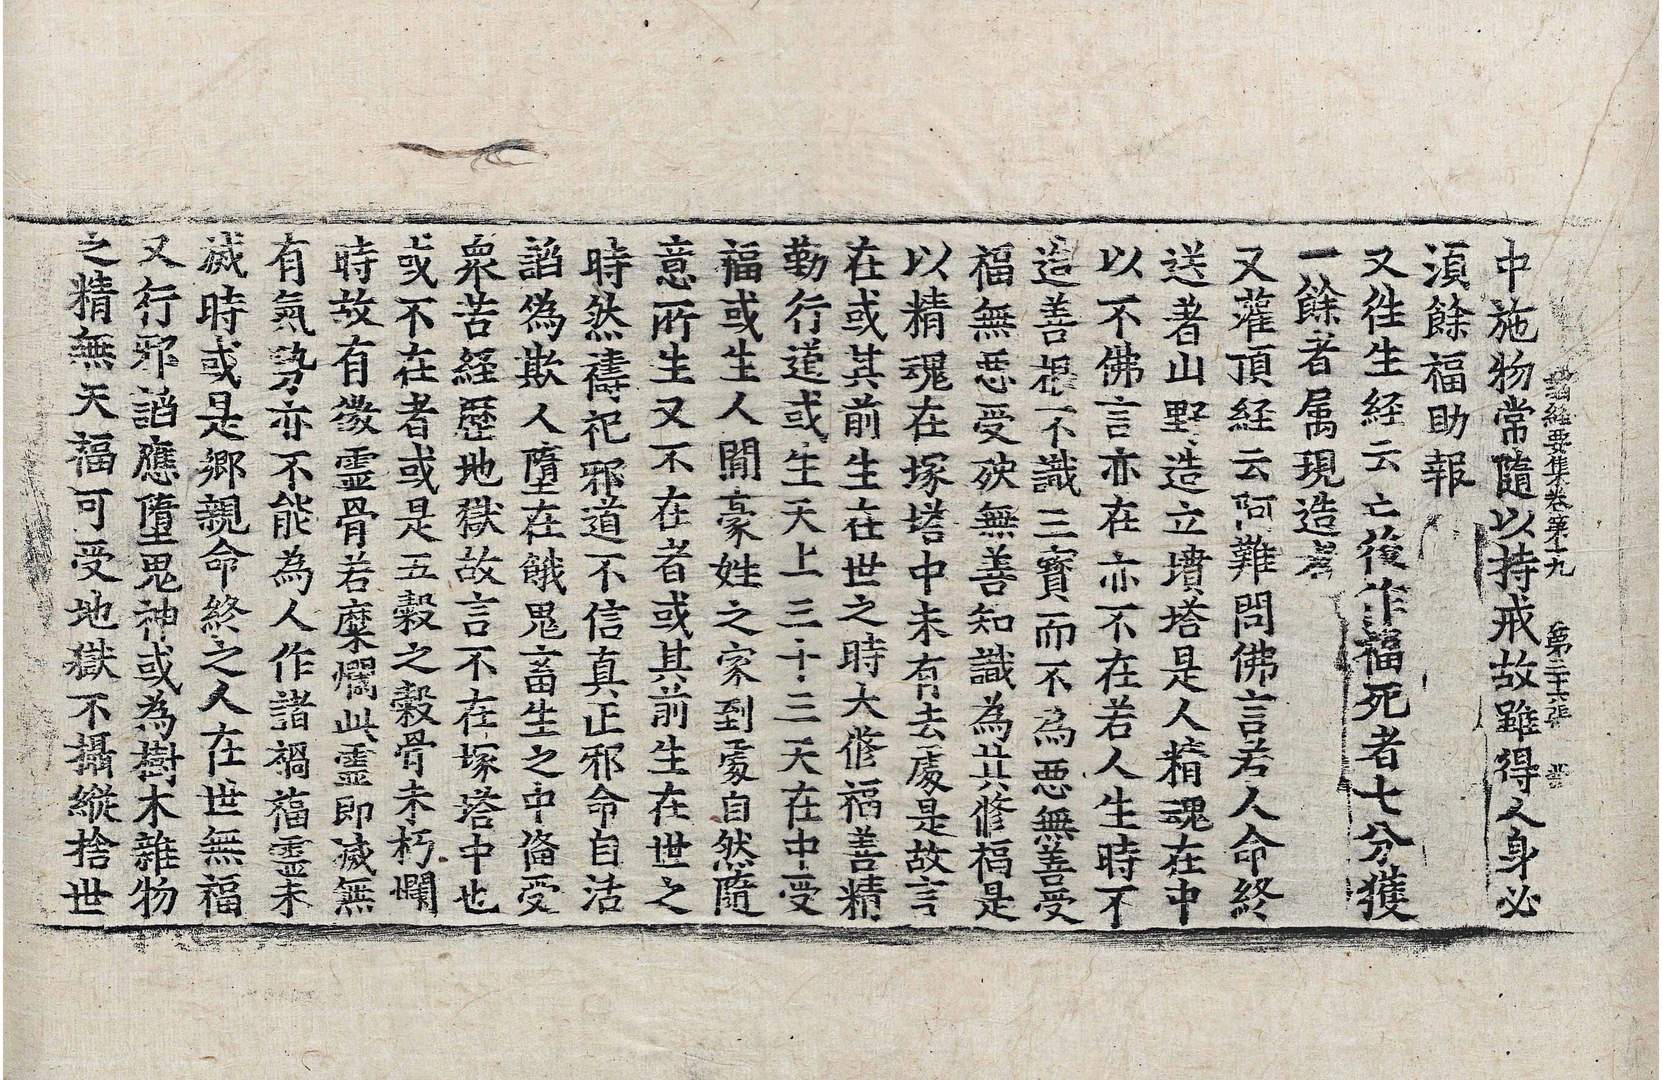 諸經要集卷第十九 第二十六張 世
中施物常隨以持戒故雖得人身必
湏餘福助報
又徃生経云亡後作福死者七分獲
一餘者属現造者
又灌頂経云阿難問佛言若人命終
送者山野造立墳塔是人精魂在中
以不佛言亦在亦不在若人生時不
造善根不識三寶而不為惡無善受
福無惡受殃無善知識為其修福是
以精魂在塚塔中未有去處是故言
在或其前生在世之時大修福善精
勤行道或生天上三十三天在中受
福或生人間豪姓之家到處自然隨
意所生又不在者或其前生在世之
時然禱祀邪道不信真正邪命自活
諂偽欺人墮在餓鬼畜生之中俻受
衆苦経歷地獄故言不在塚塔中也
或不在者或是五穀之穀骨未朽爛
時故有微靈骨若糜爛此靈即滅無
有氣勢亦不能為人作諸禍福靈未
滅時或是鄉親命終之人在世無福
又行邪諂應墮鬼神或為樹木雜物
之精無天福可受地獄不攝縱捨世